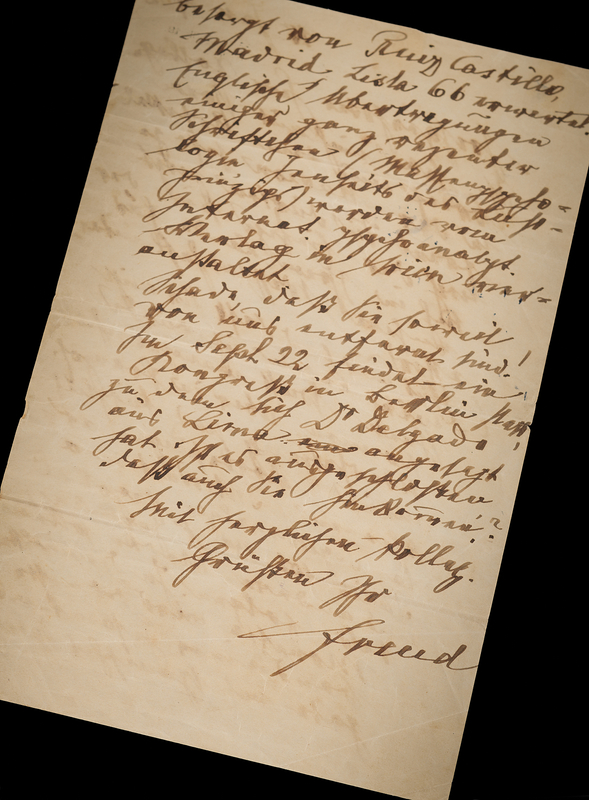 besorgt von Ruiz Castillo,
Madrid Lista 66 erwartet.
Englische Übertragungen
einiger ganz rezenter
Schriftchen (Massenpsycho=
logie Jenseits des Lust=
prinzips) werden vom
Internat. Psychoanalyt.
Verlag in Wien ver=
anstaltet
Schade, daß Sie so weit
von uns entfernt sind!
Im Sept. 22 findet ein
Kongreß in Berlin statt,
zu dem sich Dr Delgado
aus Lima angesagt
hat. Ist es ausgeschlossen
daß auch Sie hinkommen?
Mit herzlichen kolleg.
Grüßen Ihr
Freud